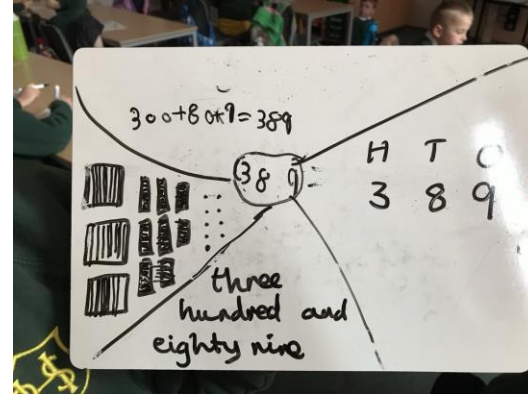 300+80+9=389
389
H T O
3 8 9
three
hundred and
eighty nine